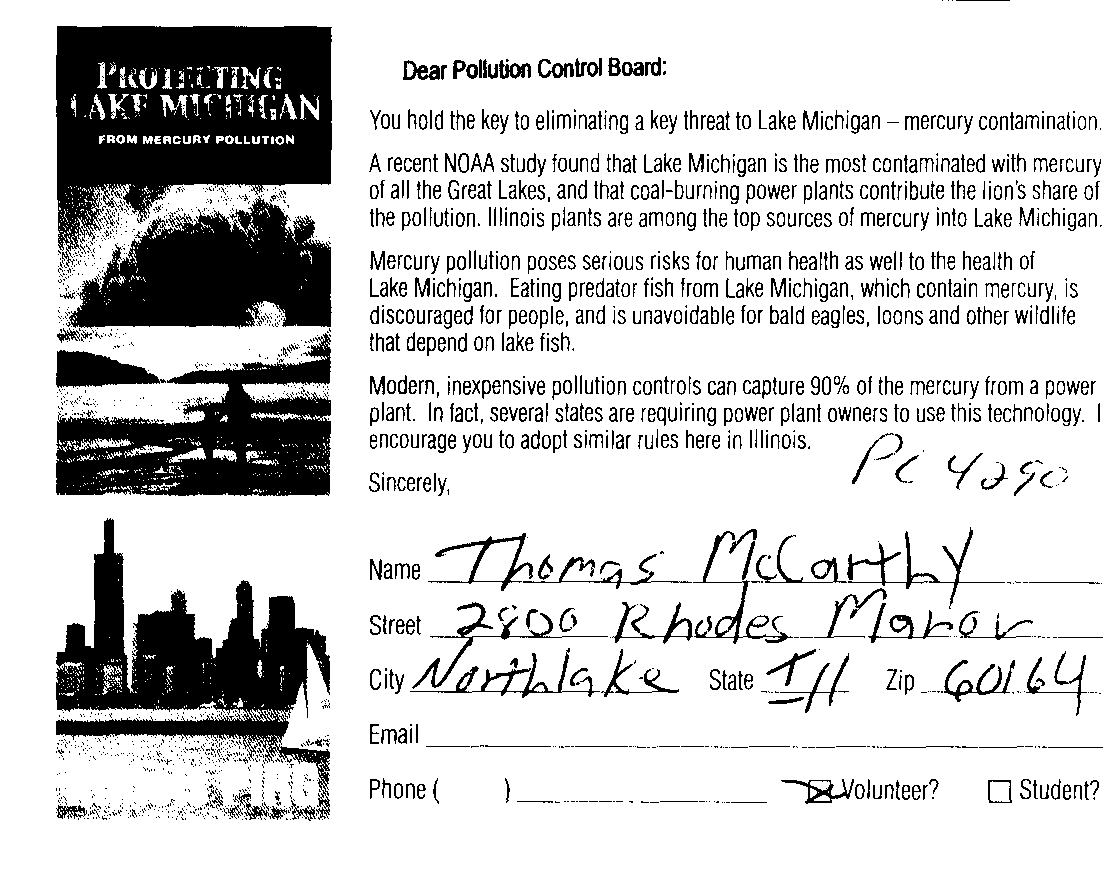 PROTECTING
LAKE MICHIGAN
FROM MERCURY POLLUTION
Dear Pollution Control Board:
You hold the key to eliminating a key threat to Lake Michigan – mercury contamination.
A recent NOAA study found that Lake Michigan is the most contaminated with mercury
of all the Great Lakes, and that coal-burning power plants contribute the lion's share of
the pollution. Illinois plants are among the top sources of mercury into Lake Michigan.
Mercury pollution poses serious risks for human health as well to the health of
Lake Michigan. Eating predator fish from Lake Michigan, which contain mercury, is
discouraged for people, and is unavoidable for bald eagles, loons and other wildlife
that depend on lake fish.
Modern, inexpensive pollution controls can capture 90% of the mercury from a power
plant. In fact, several states are requiring power plant owners to use this technology. I
encourage you to adopt similar rules here in Illinois.
PC 4290
Sincerely,
Name Thomas McCarthy
Street 2800 Rhodes Manor
City Northlake State Ill Zip 60164
Email
Phone ( ) Volunteer? Student?